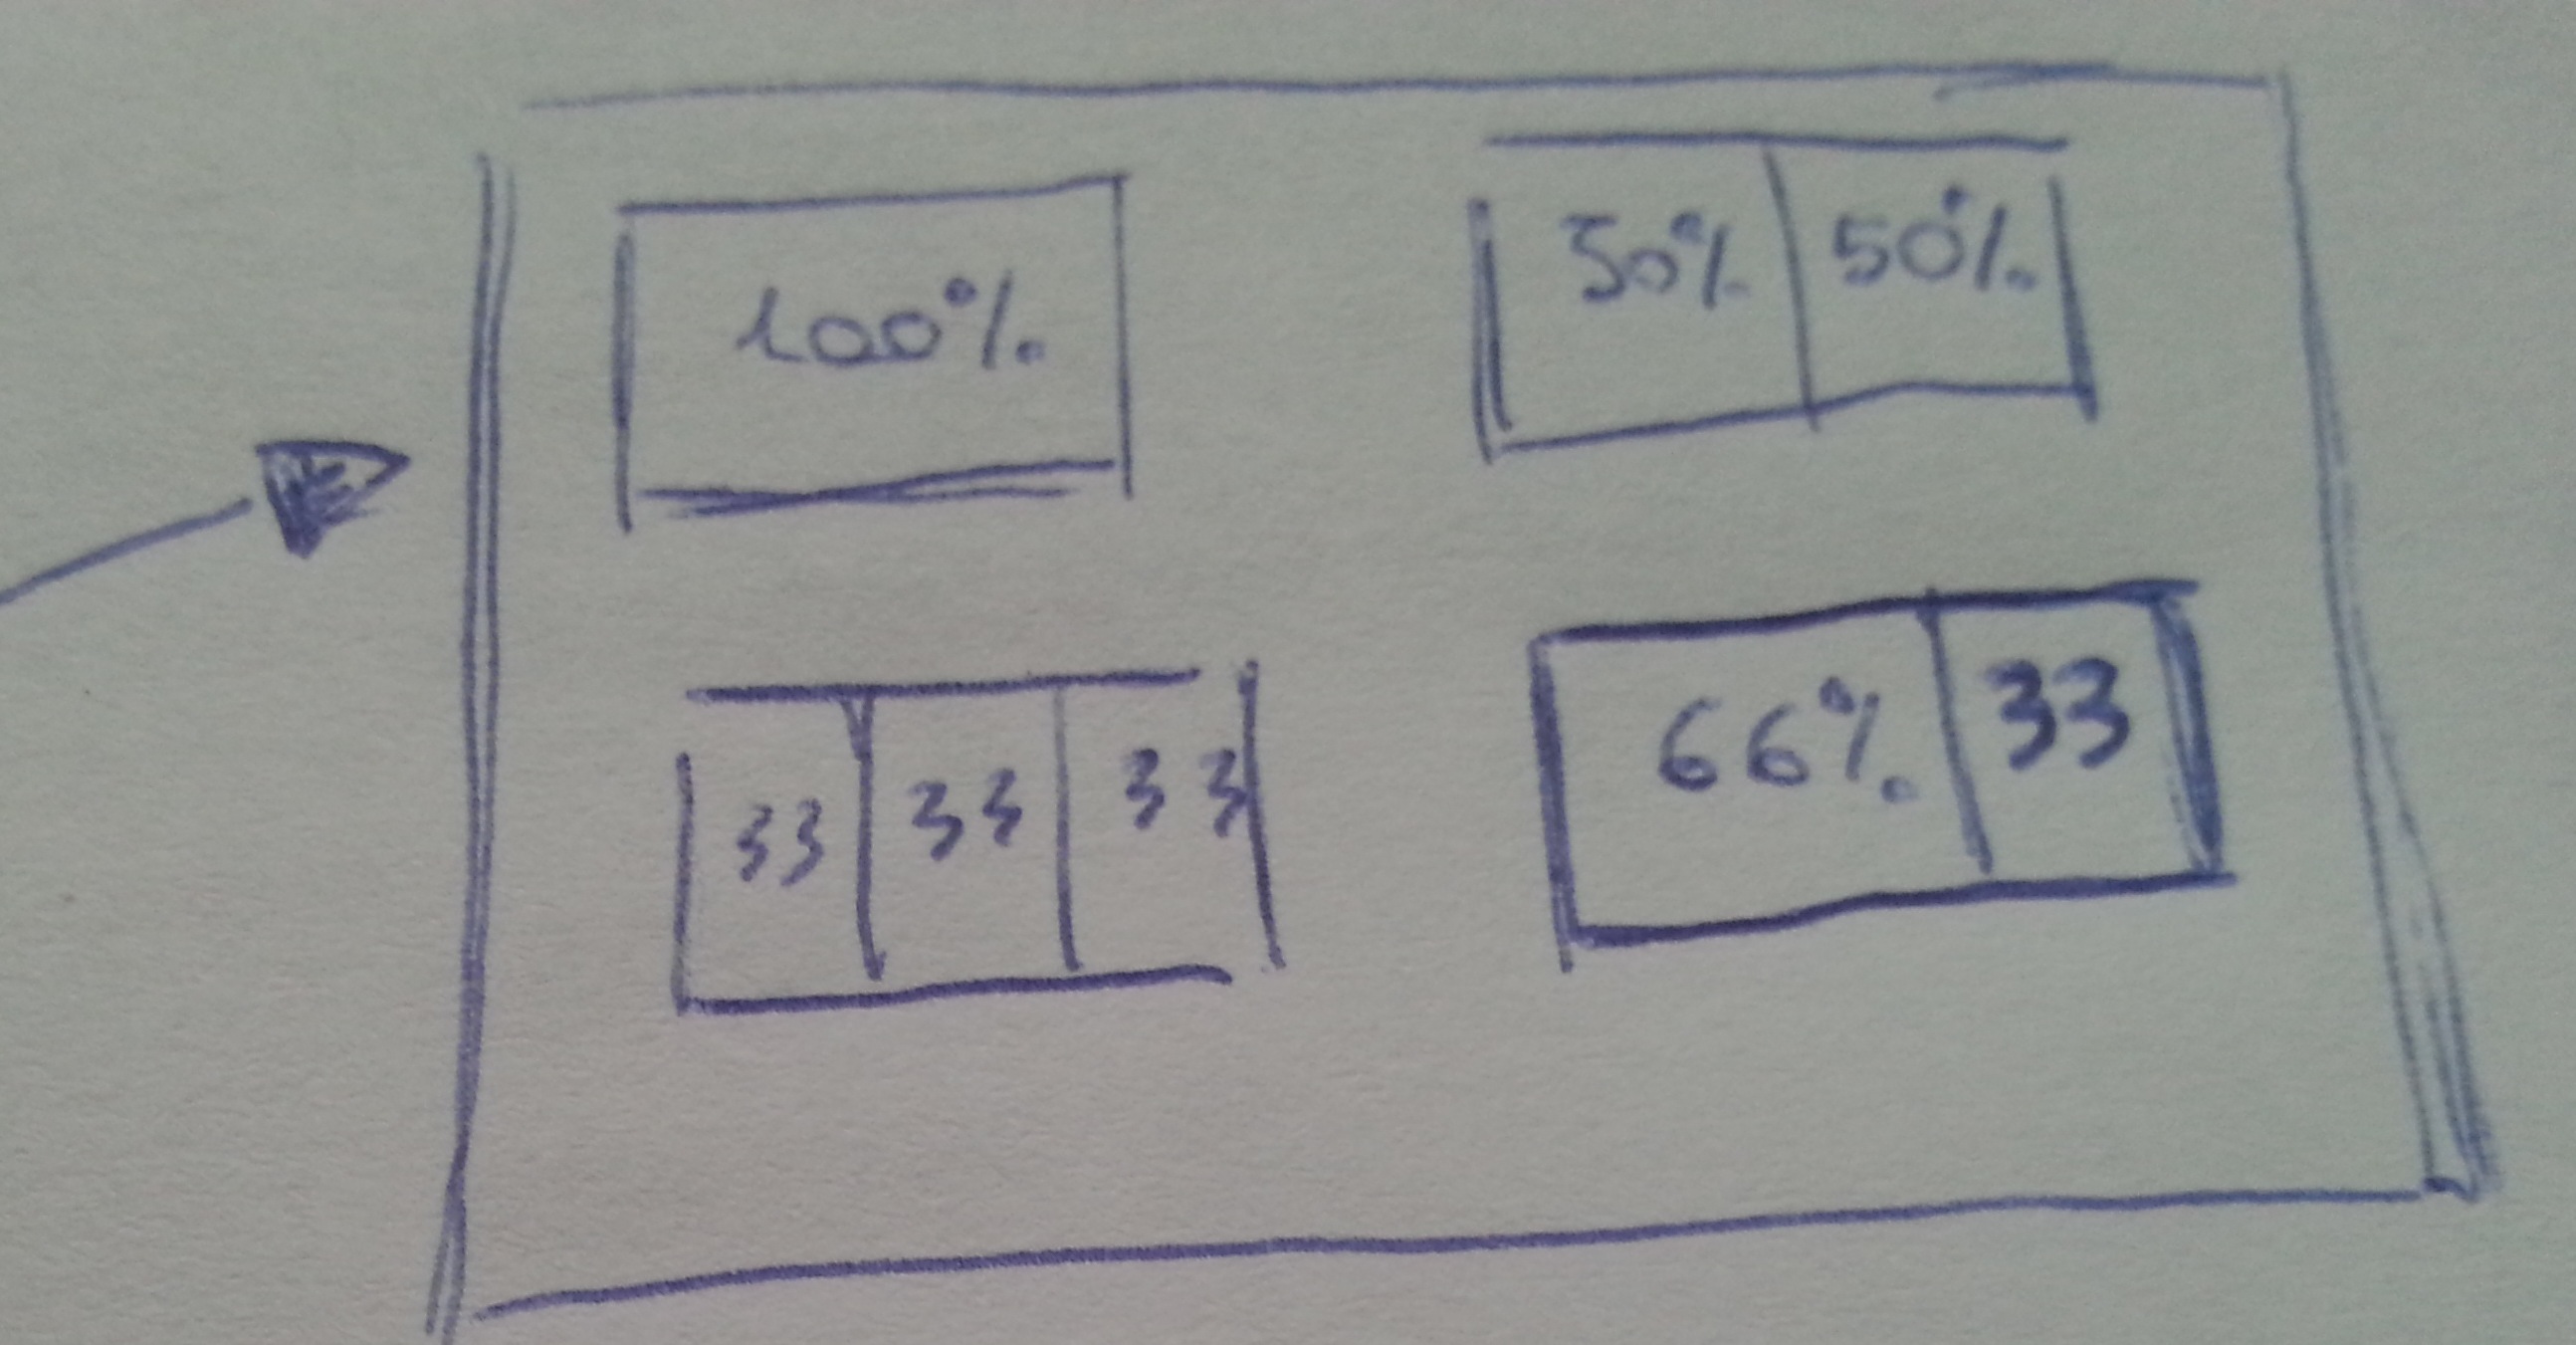 100%
50% 50%
33 33 33
66% 33